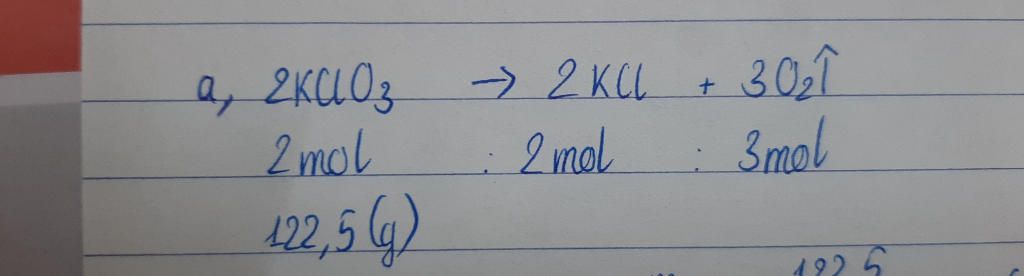 a, 2KClO3 → 2KCl + 3O2↑
2mol : 2mol : 3mol
122,5(g)